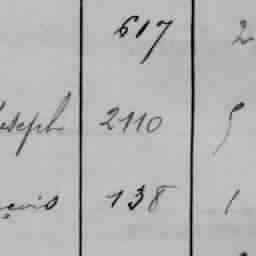 617 2
Joseph 2110 5
138 1